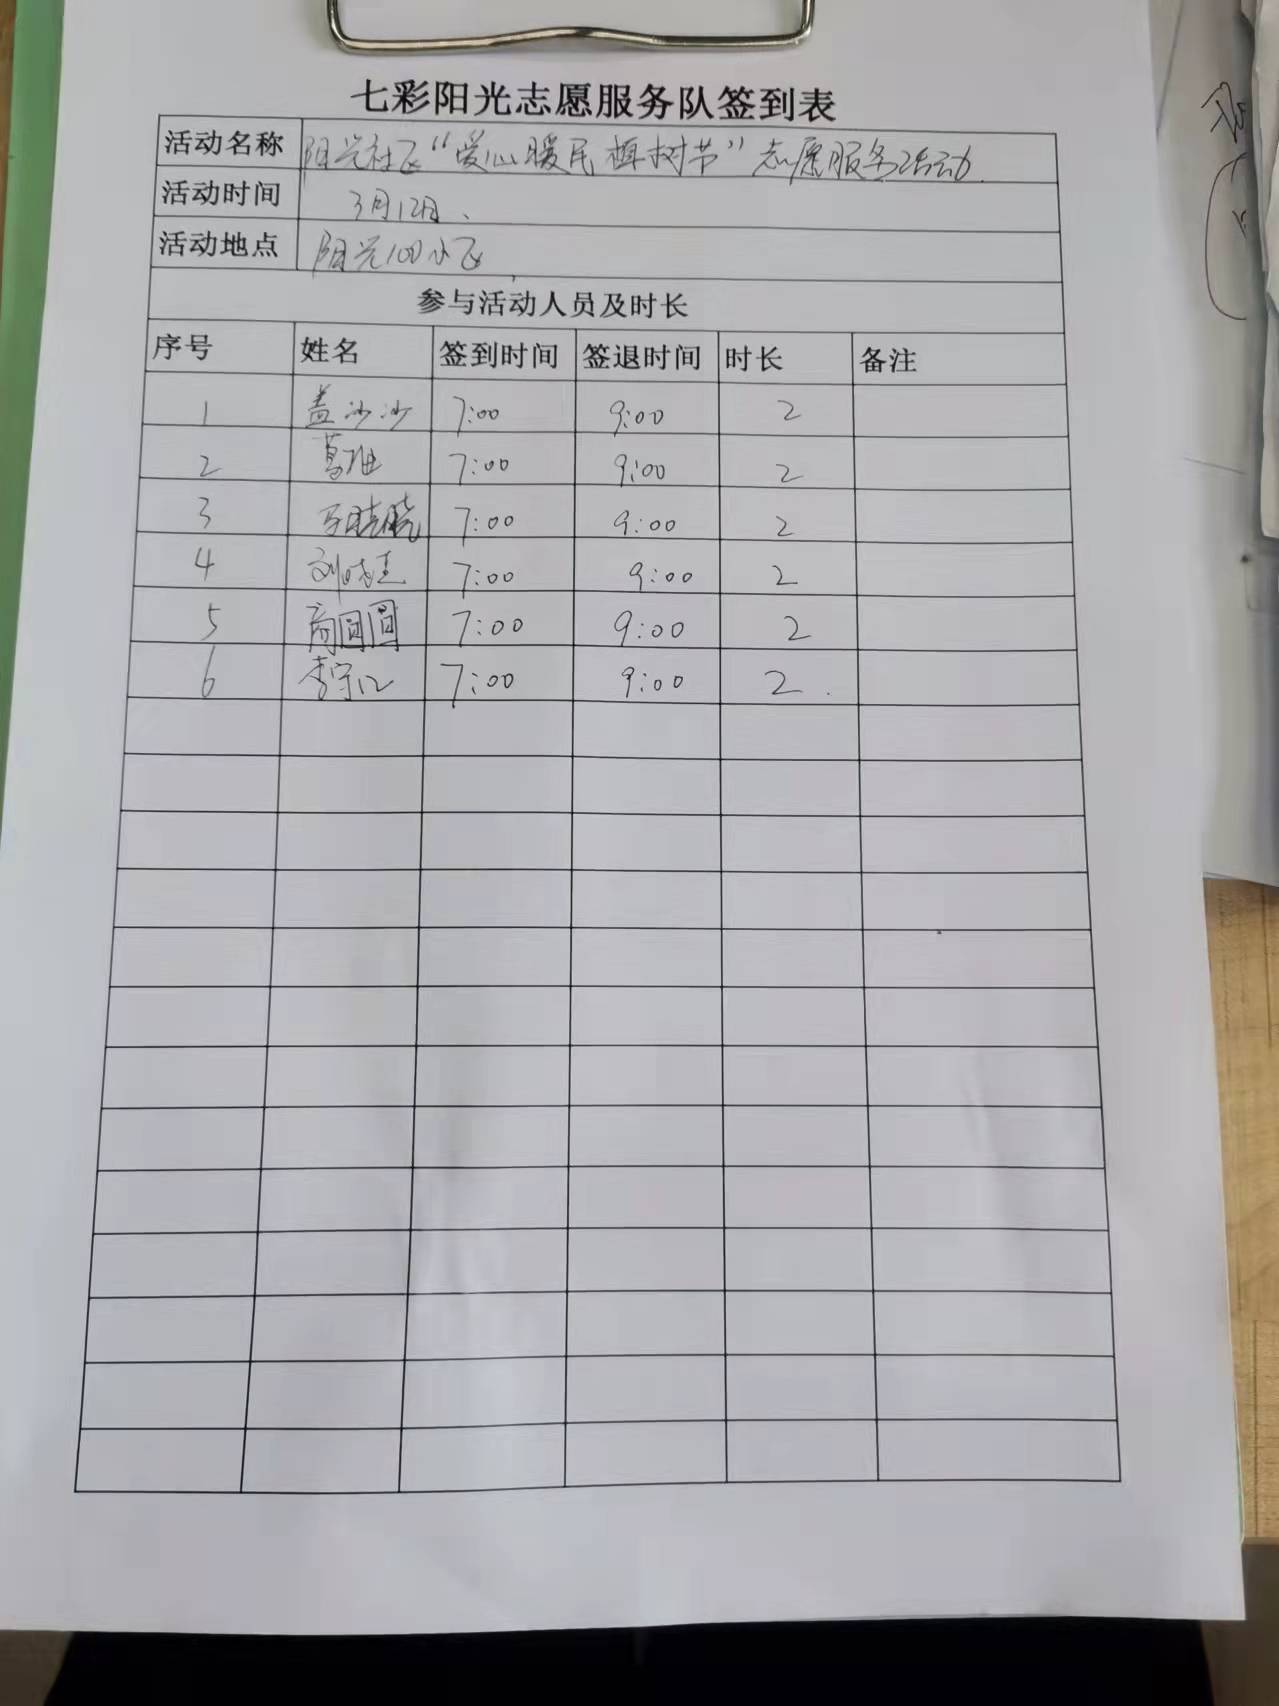 七彩阳光志愿服务队签到表
活动名称 阳光社区“爱心暖民 植树节”志愿服务活动
活动时间 3月12日、
活动地点 阳光100小区
参与活动人员及时长
序号 姓名 签到时间 签退时间 时长 备注
1 盖沙沙 7:00 9:00 2
2 7:00 9:00 2
3 7:00 9:00 2
4 7:00 9:00 2
5 商圆圆 7:00 9:00 2
6 7:00 9:00 2